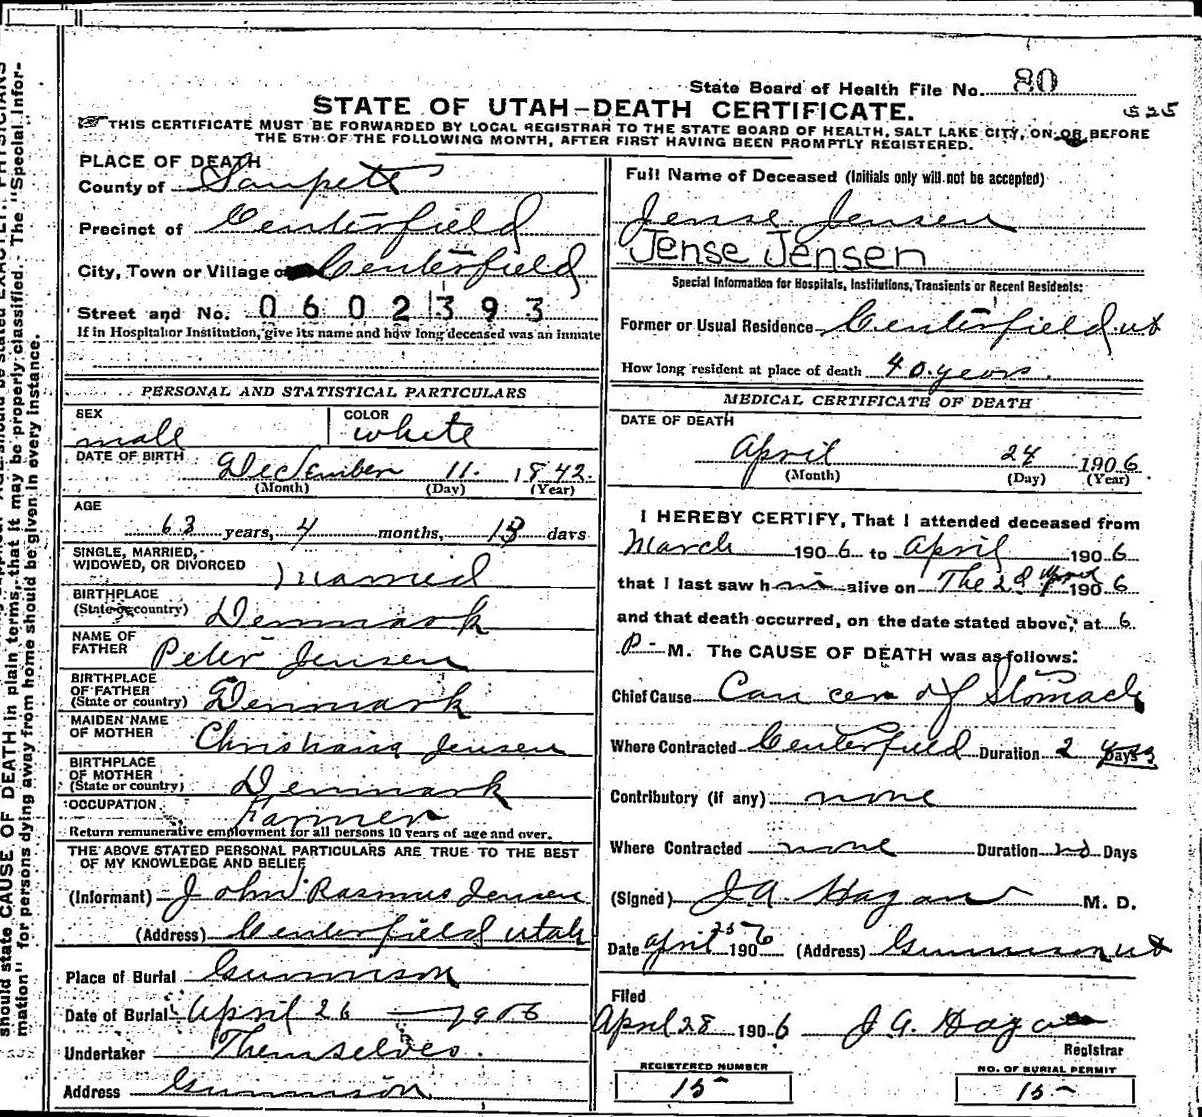 State Board of Health File No. 80
STATE OF UTAH-DEATH CERTIFICATE.
525
THIS CERTIFICATE MUST BE FORWARDED BY LOCAL REGISTRAR TO THE STATE BOARD OF HEALTH, SALT LAKE CITY, ON OR BEFORE
THE 5TH OF THE FOLLOWING MONTH, AFTER FIRST HAVING BEEN PROMPTLY REGISTERED.
PLACE OF DEATH
County of Sanpete
Precinct of Centerfield
City, Town or Village of Centerfield
Street and No. 0602393
If in Hospital or Institution, give its name and how long deceased was an inmate
PERSONAL AND STATISTICAL PARTICULARS
SEX
male
COLOR
white
DATE OF BIRTH
December 11. 1842.
(Month) (Day) (Year)
AGE
63 years, 4 months, 13 days
SINGLE, MARRIED,
WIDOWED, OR DIVORCED
married
BIRTHPLACE
(State or country) Denmark
NAME OF
FATHER Peter Jensen
BIRTHPLACE
OF FATHER
(State or country) Denmark
MAIDEN NAME
OF MOTHER Christiana Jensen
BIRTHPLACE
OF MOTHER
(State or country) Denmark
OCCUPATION Farmer
Return remunerative employment for all persons 10 years of age and over.
THE ABOVE STATED PERSONAL PARTICULARS ARE TRUE TO THE BEST
OF MY KNOWLEDGE AND BELIEF
(Informant) John Rasmus Jensen
(Address) Centerfield Utah
Place of Burial Gunnison
Date of Burial April 26 1906
Undertaker Themselves.
Address Gunnison
Full Name of Deceased (Initials only will not be accepted)
Jense Jensen
Jense Jensen
Special Information for Hospitals, Institutions, Transients or Recent Residents:
Former or Usual Residence Centerfield ut
How long resident at place of death 40 years.
MEDICAL CERTIFICATE OF DEATH
DATE OF DEATH
April 24 1906
(Month) (Day) (Year)
I HEREBY CERTIFY, That I attended deceased from
March 1906 to April 1906
that I last saw him alive on The 23 April 1906
and that death occurred, on the date stated above, at 6
P. M. The CAUSE OF DEATH was as follows:
Chief Cause Cancer of Stomach
Where Contracted Centerfield Duration 2 Days
Contributory (if any) none
Where Contracted none Duration no Days
(Signed) J A Hagan M. D.
Date April 25 1906 (Address) Gunnison ut
Filed
April 28 1906 J A. Hagan
Registrar
REGISTERED NUMBER
15
NO. OF BURIAL PERMIT
15
should state CAUSE OF DEATH in plain terms, that it may be properly classified. The "Special Infor-
mation" for persons dying away from home should be given in every instance.